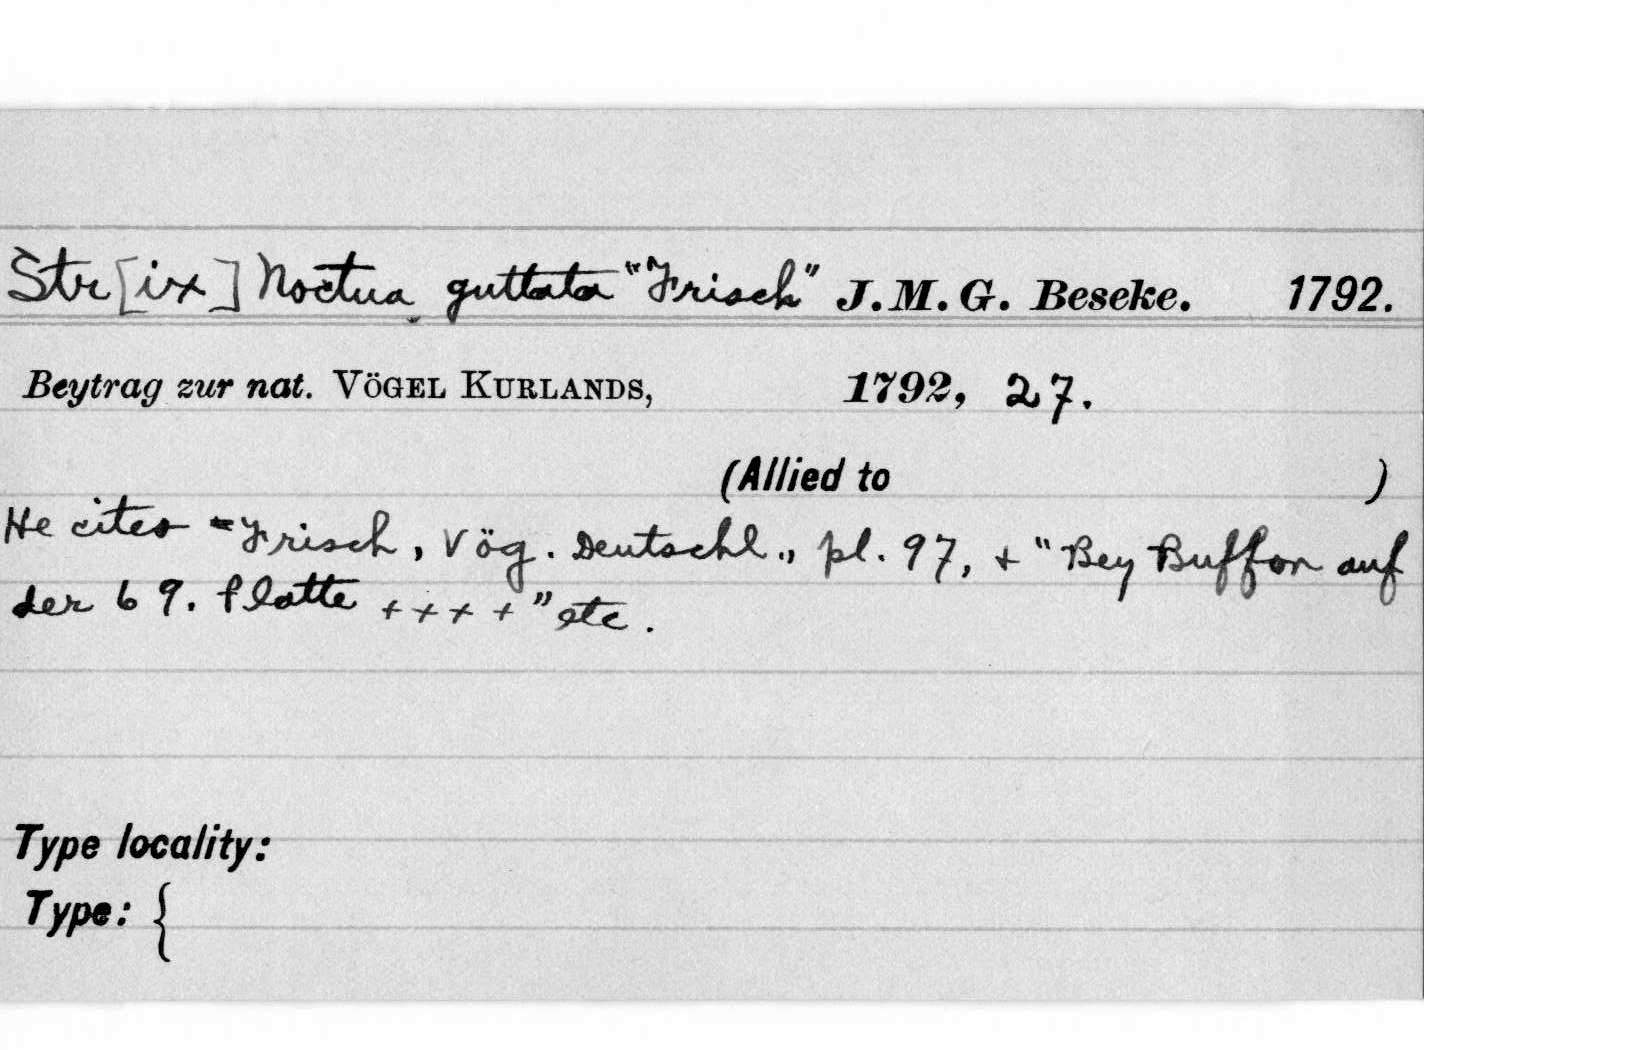 Str[ix] Noctua guttata "Frisch" J. M. G. Beseke. 1792.
Beytrag zur nat. VÖGEL KURLANDS, 1792, 27.
(Allied to )
He cites = Frisch, Vög. Deutschl., pl. 97, + "Bey Buffon auf
der 69. Platte ++++" etc.
Type locality:
Type: {